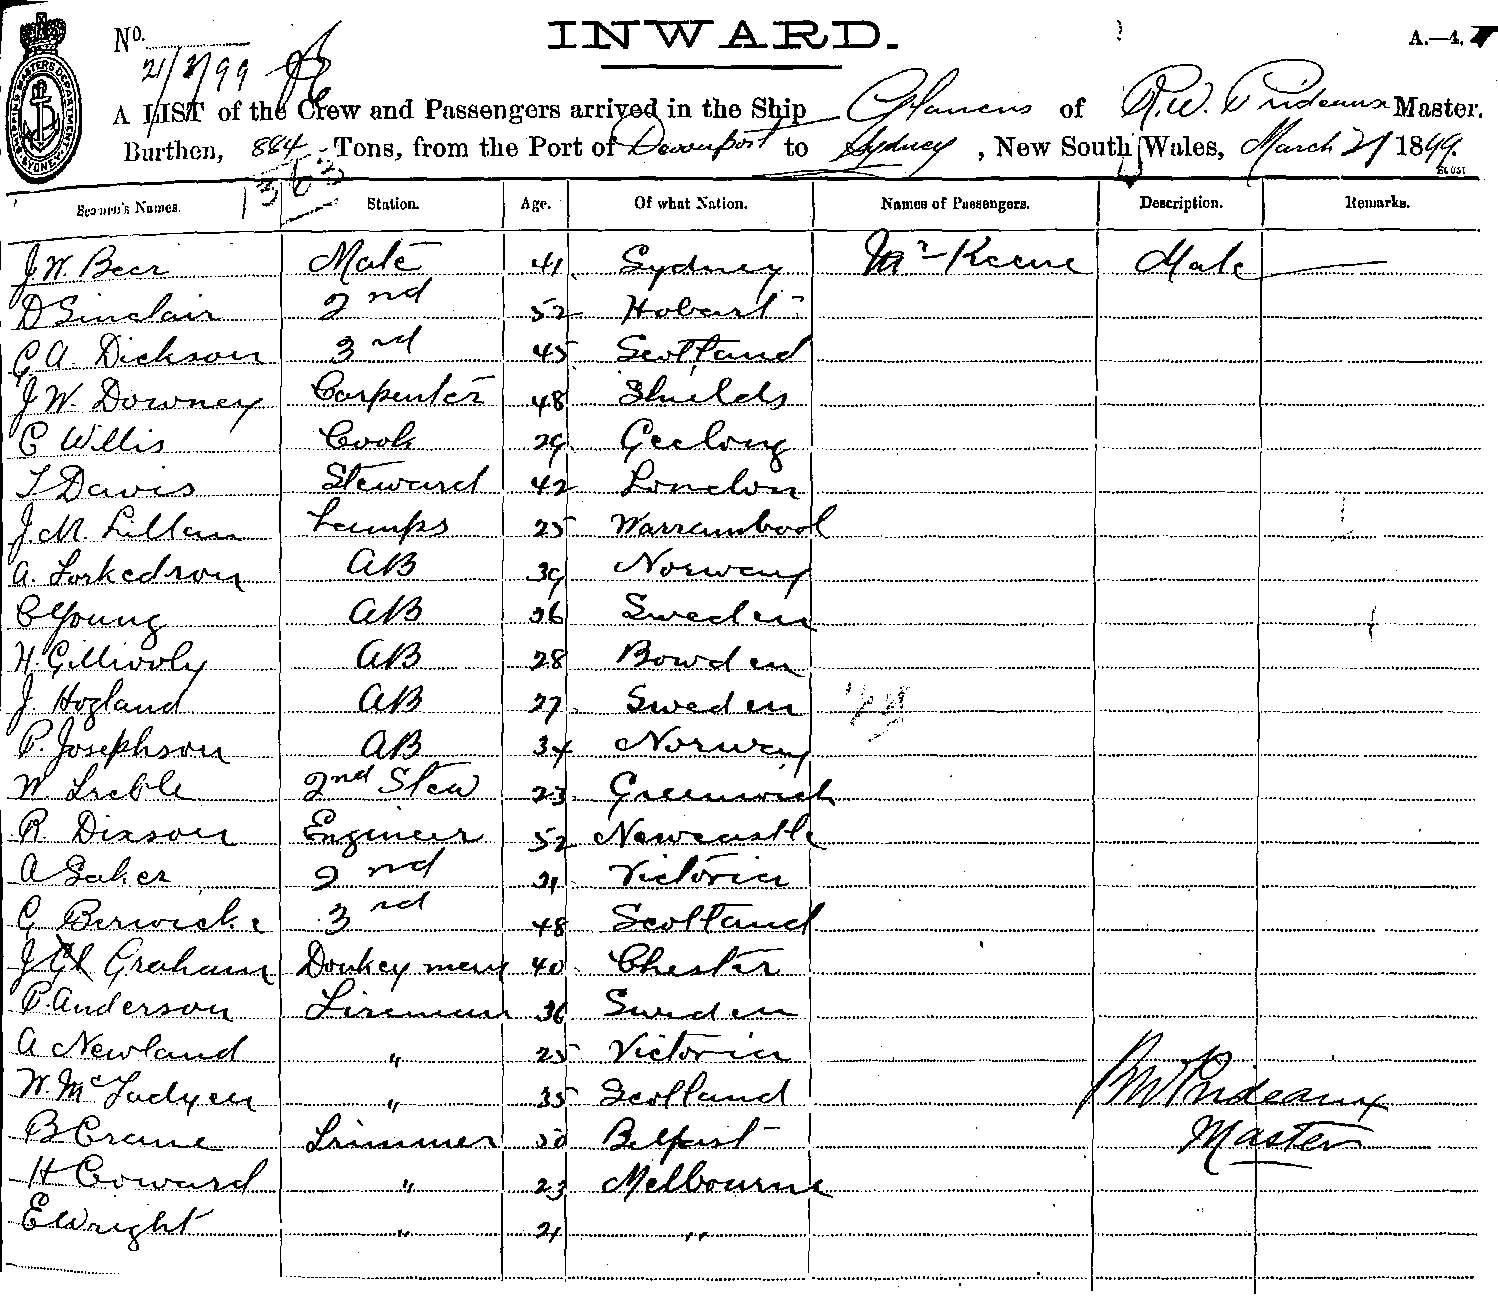 INWARD.
No.
A.—4.
21/3/99
A LIST of the Crew and Passengers arrived in the Ship Glaucus of R.W. Prideaux Master.
Burthen, 884 Tons, from the Port of Devonport to Sydney, New South Wales, March 21 1899.
1363
Seamen's Names. Station. Age. Of what Nation. Names of Passengers. Description. Remarks.
J. W. Beer Mate 41 Sydney Mr Keene Male
D Sinclair 2nd 52 Hobart
G A. Dickson 3rd 45 Scotland
J W. Downey Carpenter 48 Shields
C Willis Cook 29 Geelong
T Davis Steward 42 London
J. M. Lillan Lamps 25 Warrambool
A. Torkedson AB 39 Norway
C Young AB 26 Sweden
H. Gilliwoly AB 28 Bowden
J. Hogland AB 27 Sweden
P. Josephson AB 34 Norway
W. Treble 2nd Stew 23 Greenwich
R. Dixson Engineer 52 Newcastle
A 2nd 21 Victoria
G Berwicke 3rd 48 Scotland
J Graham Donkey man 40 Chester
P. Anderson Fireman 36 Sweden
A Newland " 25 Victoria
W. McFadyen " 35 Scotland
B Crane Trimmer 50 Belfast
H Coward " 23 Melbourne
E Wright " 21 "
RW Prideaux
Master